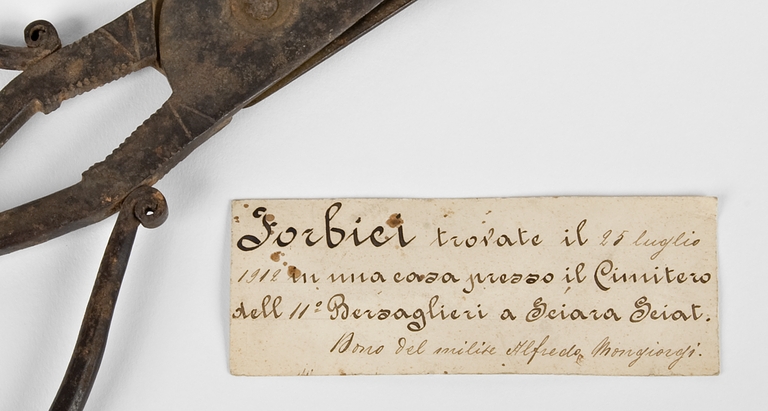 Forbici trovate il 25 luglio
1912 in una casa presso il Cimitero
dell 11° Bersaglieri a Sciara Sciat.
Bono del milite Alfredo Mongiorgi.